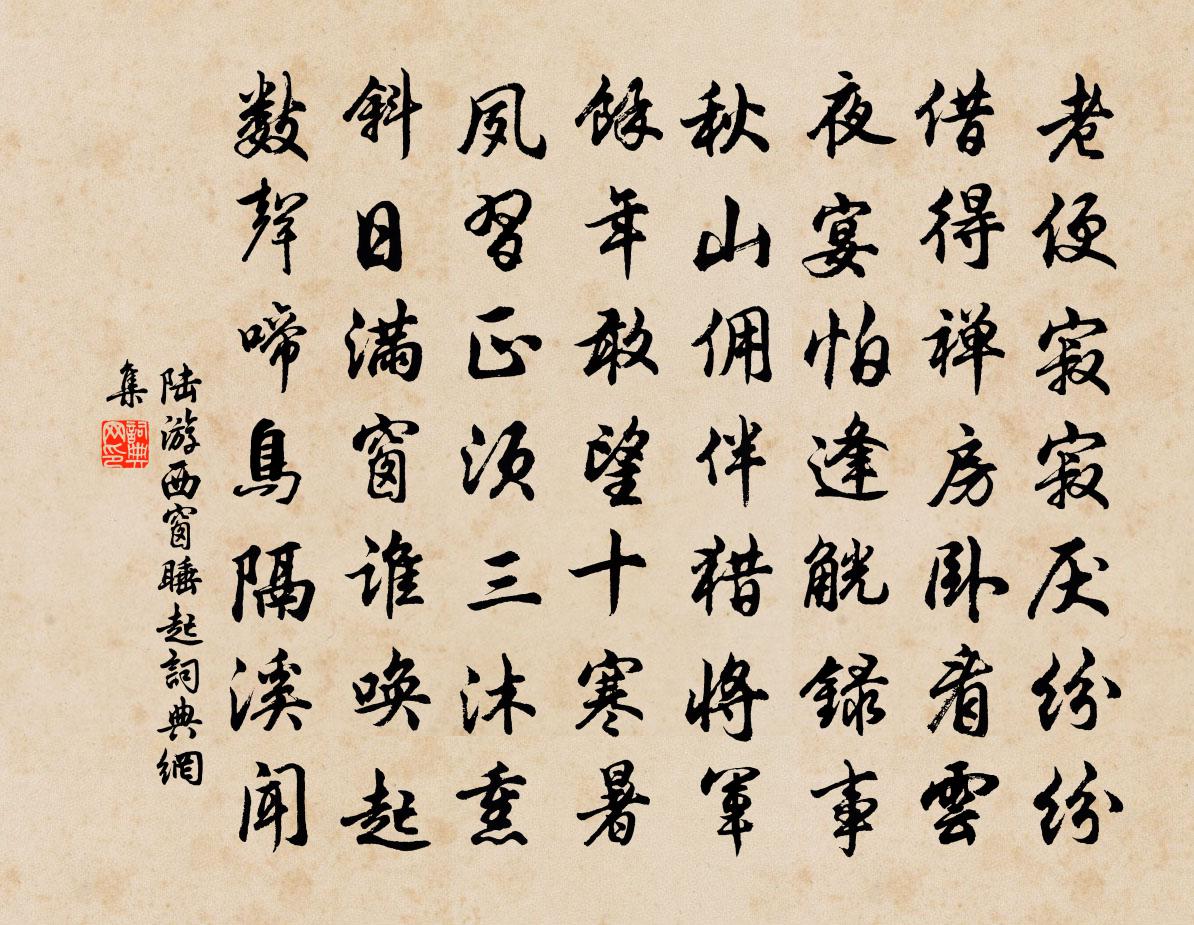 老便寂寂厌纷纷
借得禅房卧看雲
夜宴怕逢觥録事
秋山佣伴猎将军
馀年敢望十寒暑
夙习正须三沐熏
斜日满窗谁唤起
数声啼鸟隔溪闻
陆游西窗睡起詞典網
集
詞典
网印